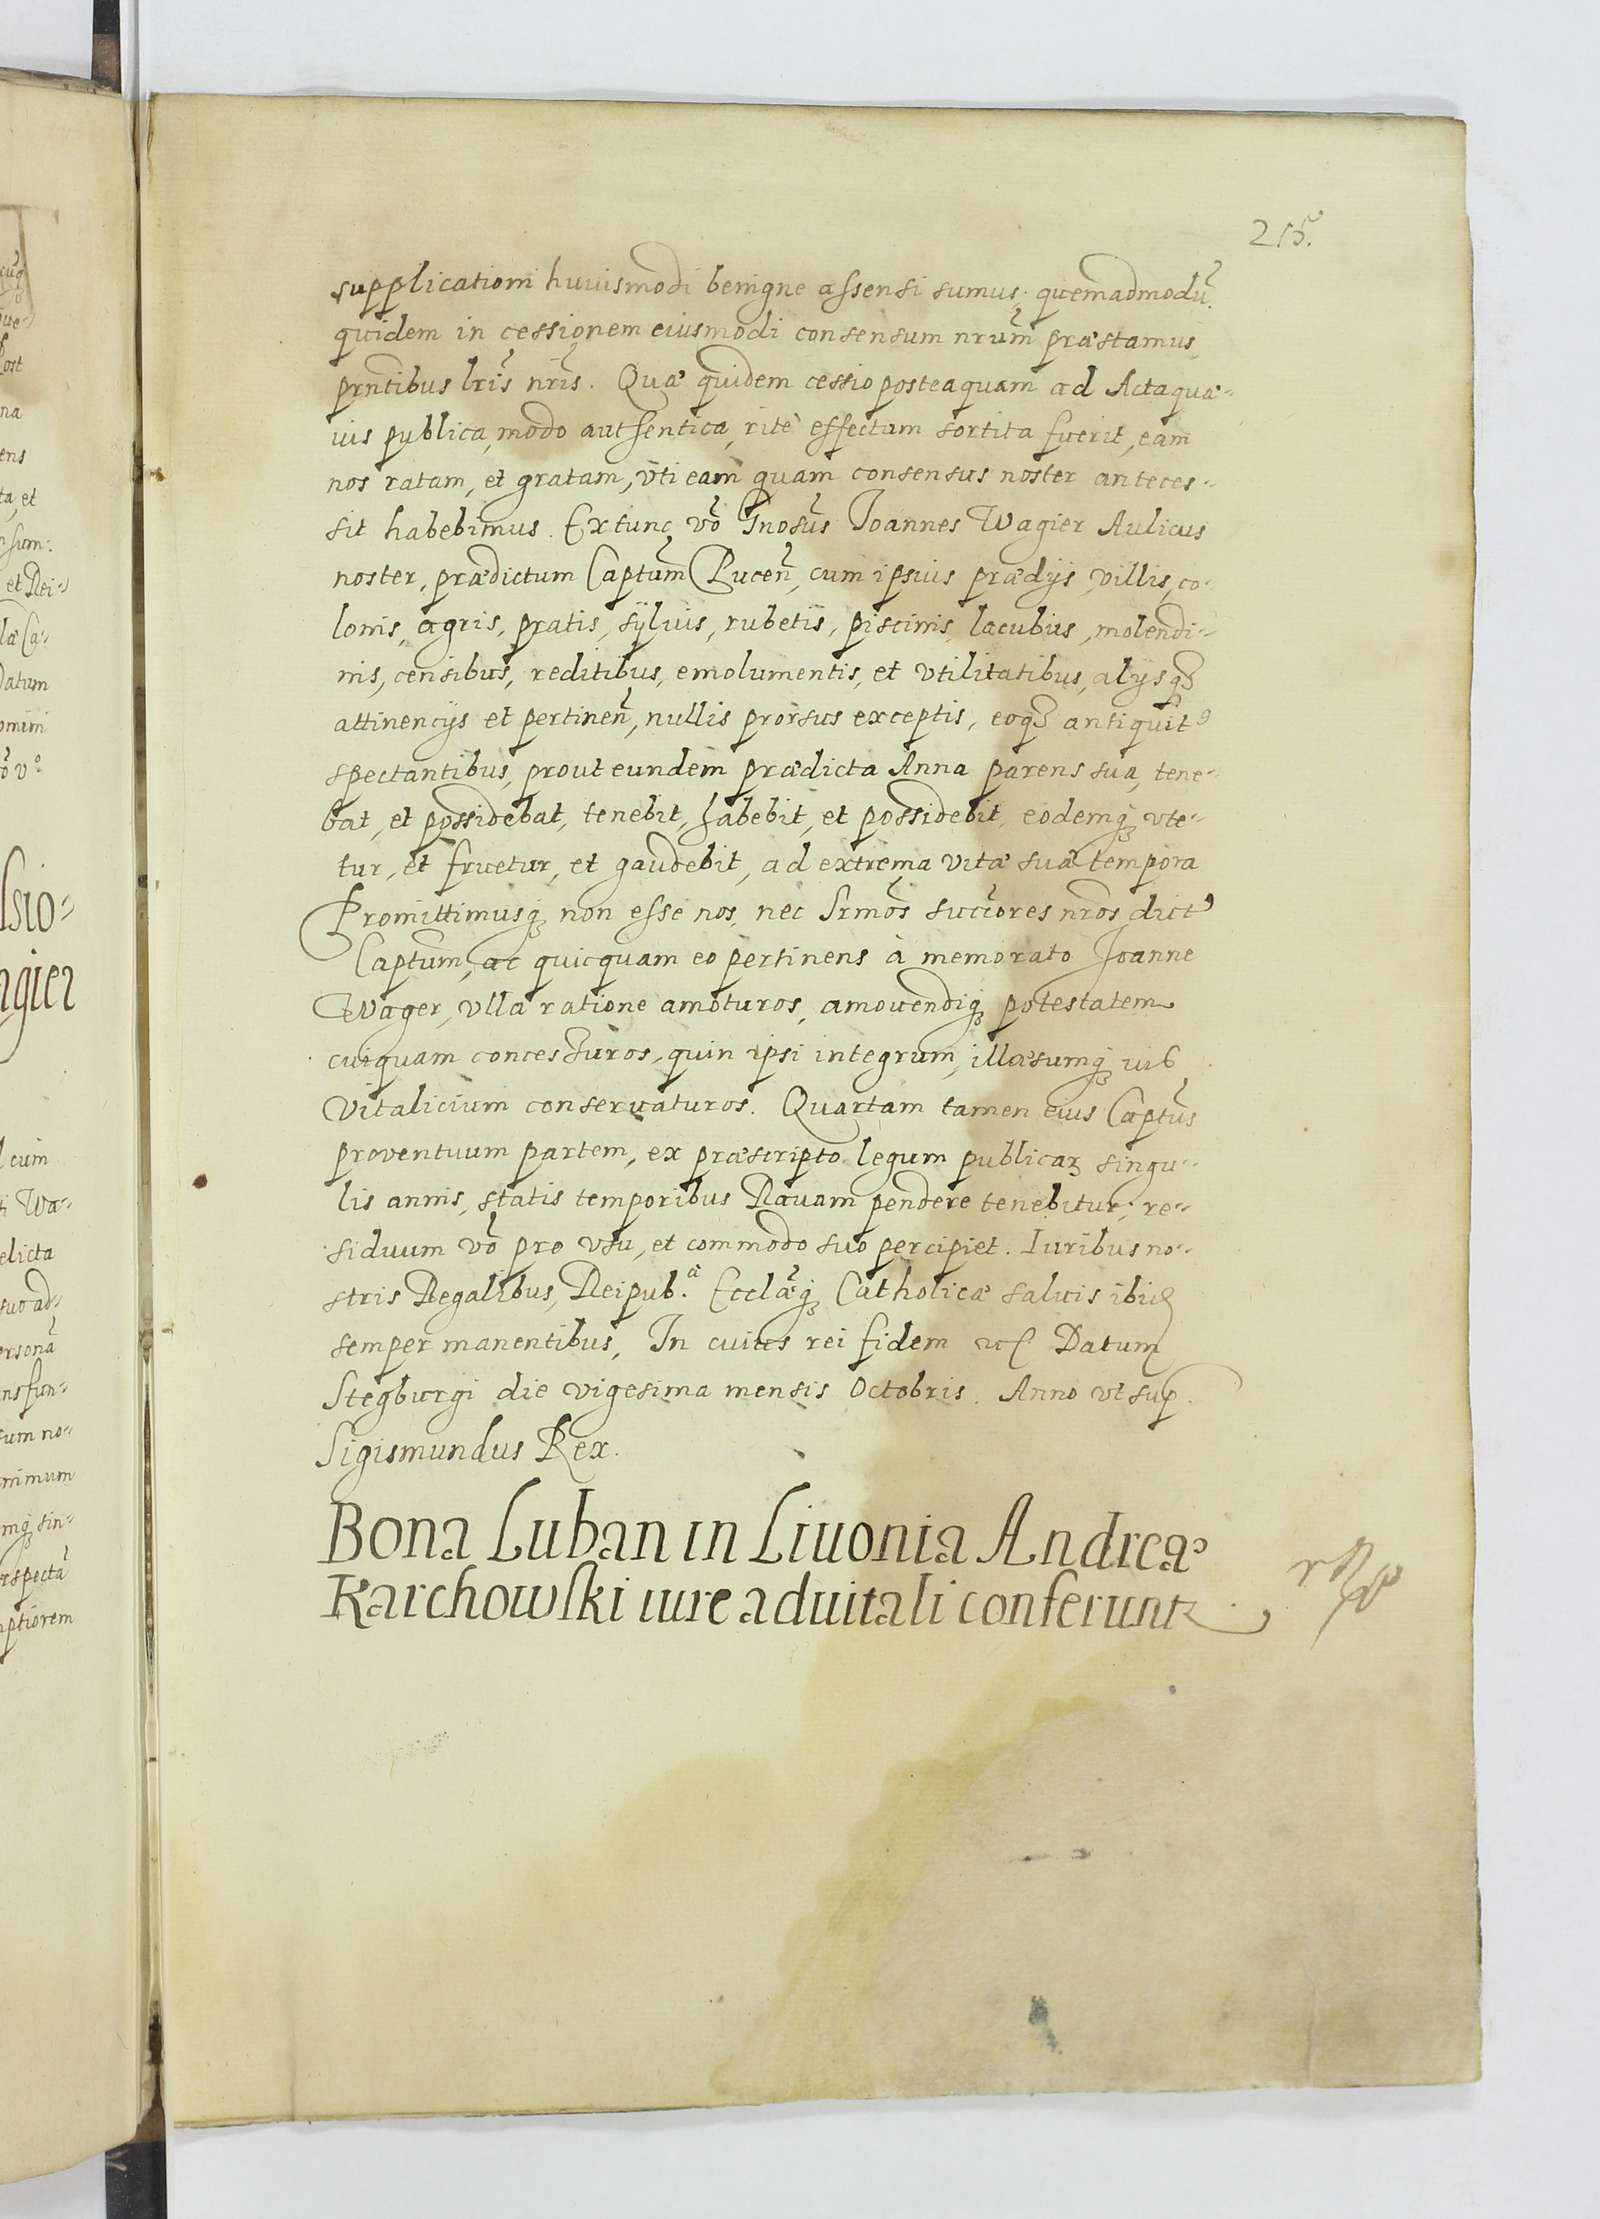 215.
supplicationi huiusmodi benigne assensi sumus; quemadmodũ
quidem in cessionem eiusmodi consensum nrũm præstamus,
prñtibus lrĩs nrĩs. Quæ quidem cessio posteaquam ad Acta quæ-
uis publica, modo authentica, ritè effectum sortita fuerit, eam
nos ratam, et gratam, vti eam quam consensus noster anteces-
sit habebimus. Extunc võ Gnosũs Joannes Wagier Aulicus
noster, prædictum Captũm Lucen̄, cum ipsius prædijs, villis, co-
lonis, agris, pratis, syluis, rubetis, piscinis, lacubus, molendi-
nis, censibus, reditibus, emolumentis, et vtilitatibus, alysqȝ
attinencijs et pertinen̄, nullis prorsus exceptis, eoqȝ antiquit9
spectantibus, prout eundem prædicta Anna parens sua, tene-
bat, et possidebat, tenebit, habebit, et possidebit, eodemqȝ vte-
tur, et fruetur, et gaudebit, ad extrema vitæ suæ tempora
Promittimusqȝ non esse nos, nec Srmõs succõres nrõs dict9
Captũm, ac quicquam eo pertinens à memorato Joanne
Wager, vlla ratione amoturos, amouendiqȝ potestatem
cuiquam concessuros, quin ipsi integrum, illæsumqȝ ius
vitalicium conseruaturos. Quartam tamen eius Captũs
prouentuum partem, ex præscripto legum publicaꝝ singu-
lis annis, statis temporibus Rauam pendere tenebitur; re-
siduum võ pro vsu, et commodo suo percipiet. Iuribus no-
stris Regalibus, Reipub.ᵃ Ecclæ̃qȝ Catholicæ saluis ibid
semper manentibus, In cuius rei fidem etc Datum
Stegburgi die vigesima mensis Octobris. Anno vt sup.
Sigismundus Rex.
Bona Luban in Liuonia Andreæ
Karchowski iure aduitali conferunt.